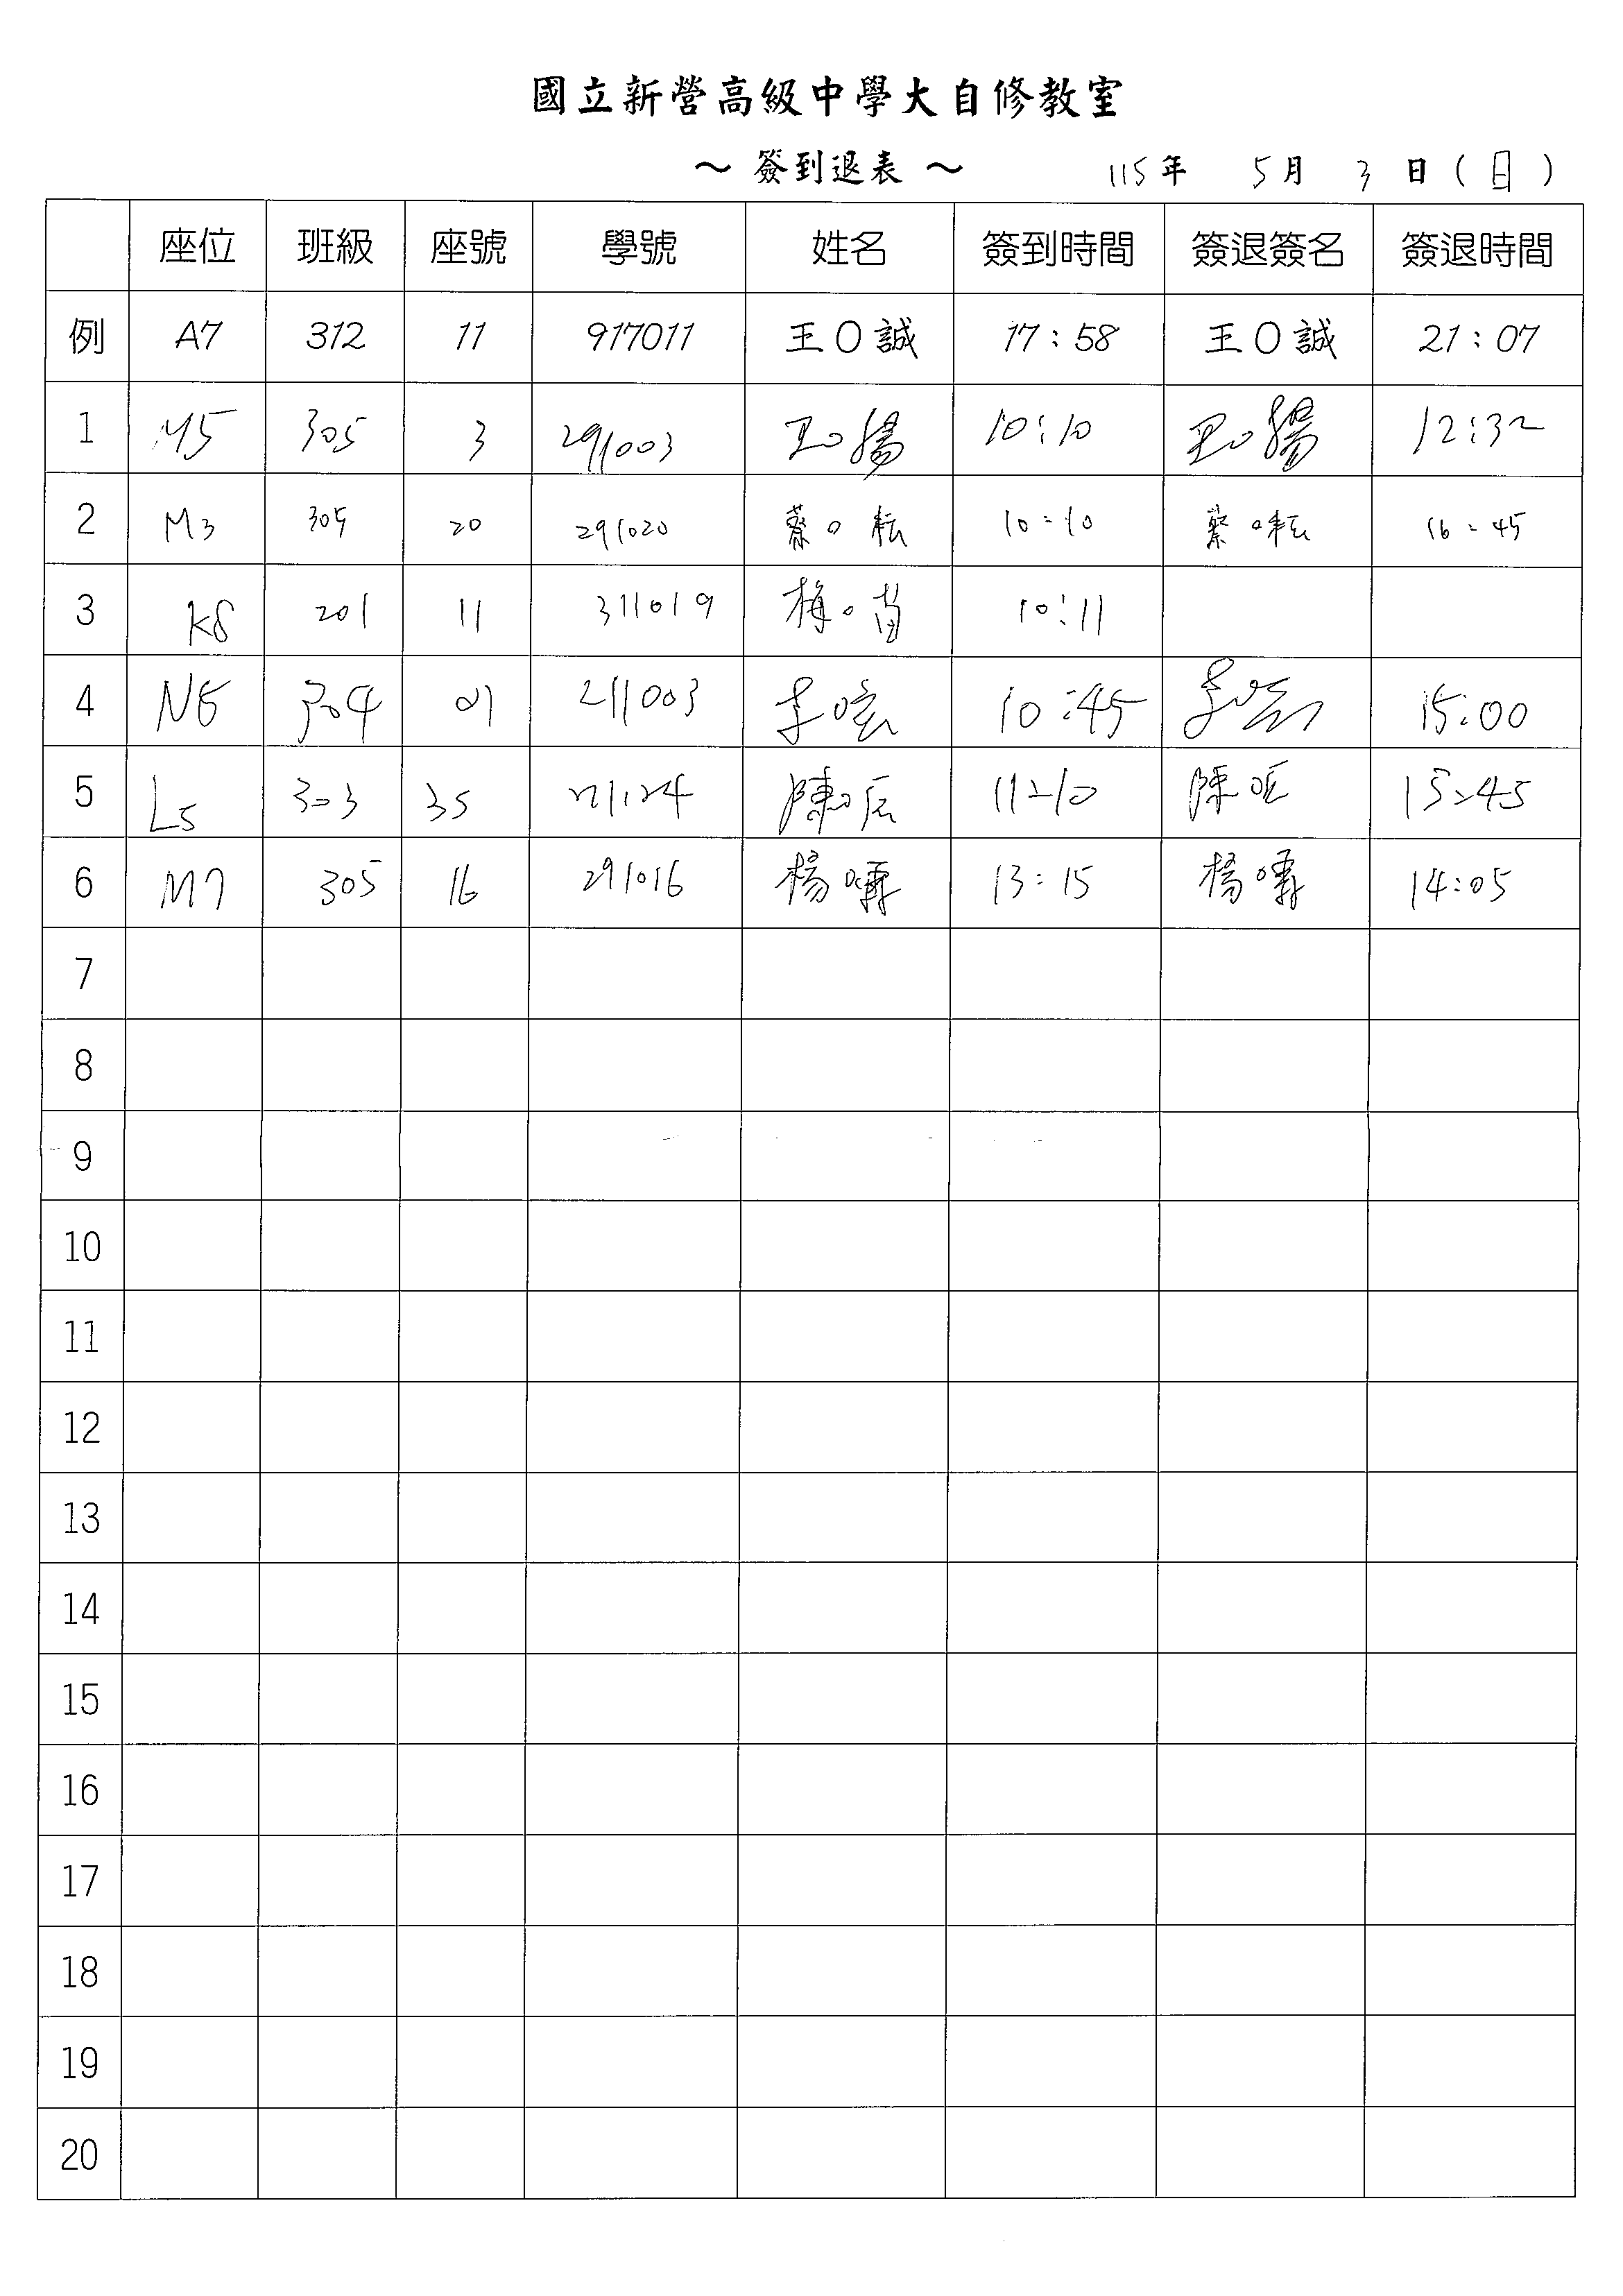 國立新營高級中學大自修教室
～ 簽到退表 ～ 115年 5月 3日(日)
座位 班級 座號 學號 姓名 簽到時間 簽退簽名 簽退時間
例 A7 312 11 917011 王○誠 17:58 王○誠 21:07
1 M5 305 3 291003 王○揚 10:10 王○揚 12:32
2 M3 305 20 291020 蔡○耘 10:10 蔡○耘 16:45
3 K8 201 11 311019 梅○苗 10:11
4 304 01 211003 李○宏 10:45 李○宏 15:00
5 L5 303 35 陳○辰 11:10 陳○辰 15:45
6 M7 305 16 291016 楊○霏 13:15 楊○霏 14:05
7
8
9
10
11
12
13
14
15
16
17
18
19
20